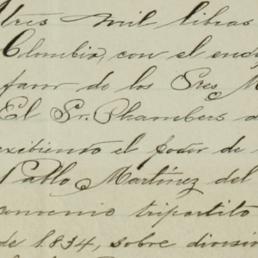 tres mil libras
Colombia, con el endo
favor de los Sres M
El Sr. Chambers
exibiendo el poder de
Pablo Martínez del
convenio tripartito
de 1834, sobre división